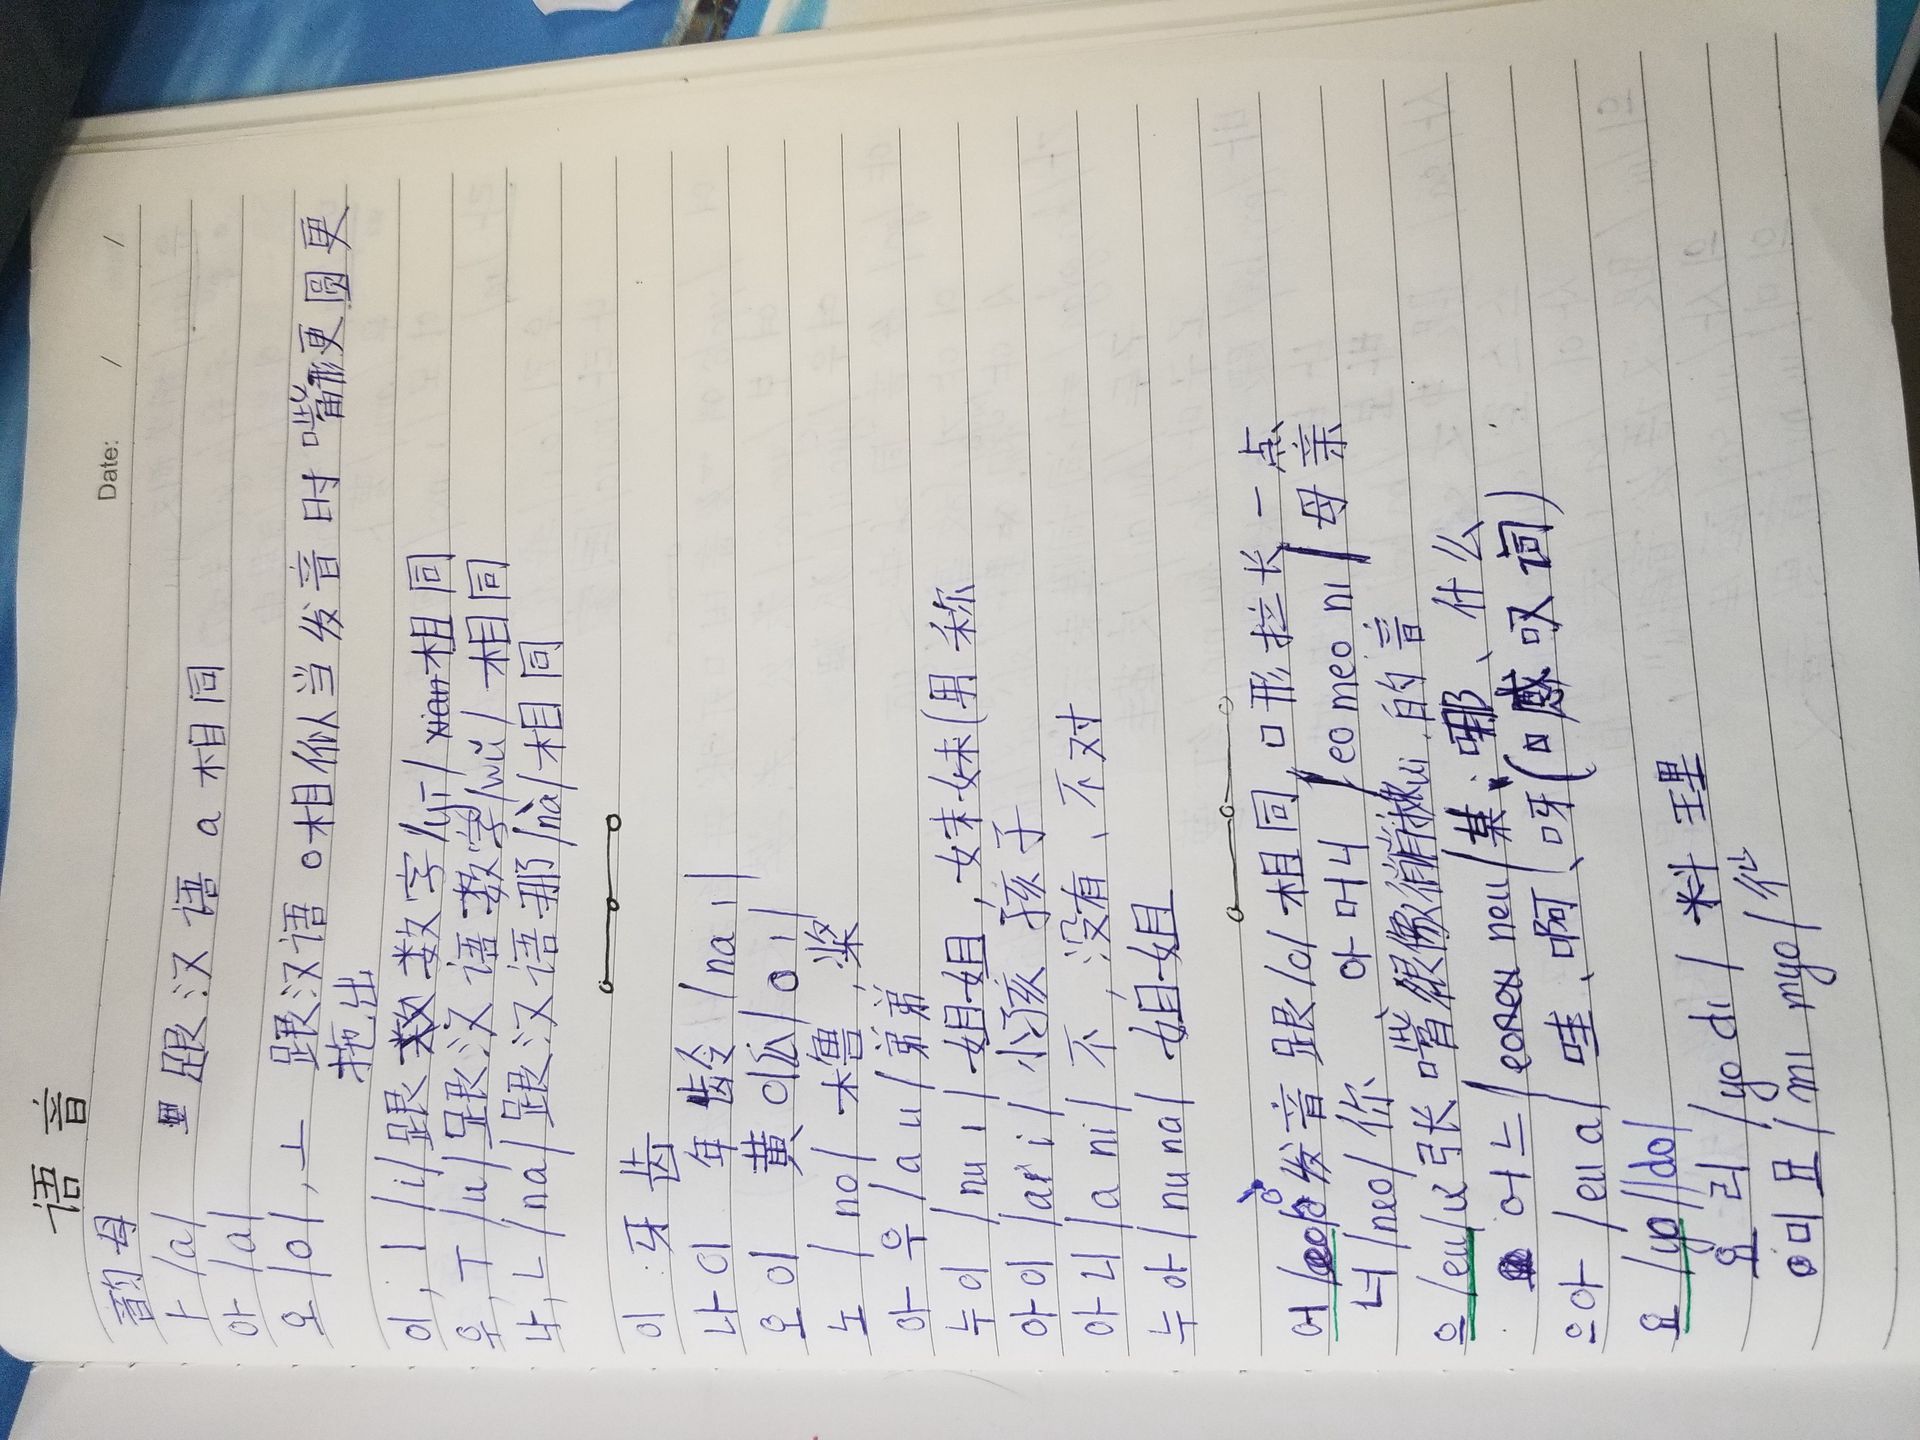 语音
Date: / /
韵母
ㅏ /a/ 跟汉语 a 相同
아 /a/
오 /o/, ㅗ 跟汉语 o 相似当发音时嘴形更圆更
拖出
이, ㅣ /i/ 跟数字/yī/相同
우, ㅜ /u/ 跟汉语数学/wǔ/相同
나, ㄴ /na/ 跟汉语那/nà/相同
이 牙齿
나이 年龄 /na i/
오이 黄瓜 /o i/
노 /no/ 橹,桨
아우 /a u/ 弟弟
누이 /nu i/ 姐姐,妹妹(男称
아이 /a i/ 小孩,孩子
아니 /a ni/ 不,没有、不对
누아 /nu na/ 姐姐
어 /eo/ 发音跟/o/相同口形拉长一点
너 /neo/ 你 어머니 /eo meo ni/ 母亲
으 /eu/ 张嘴很像的音
어느 /eo neu/ 某、哪、什么
으아 /eu a/ 哇、啊、呀(感叹词)
요 /yo/ /do/
요리 /yo di/ 料理
이묘 /mi myo/